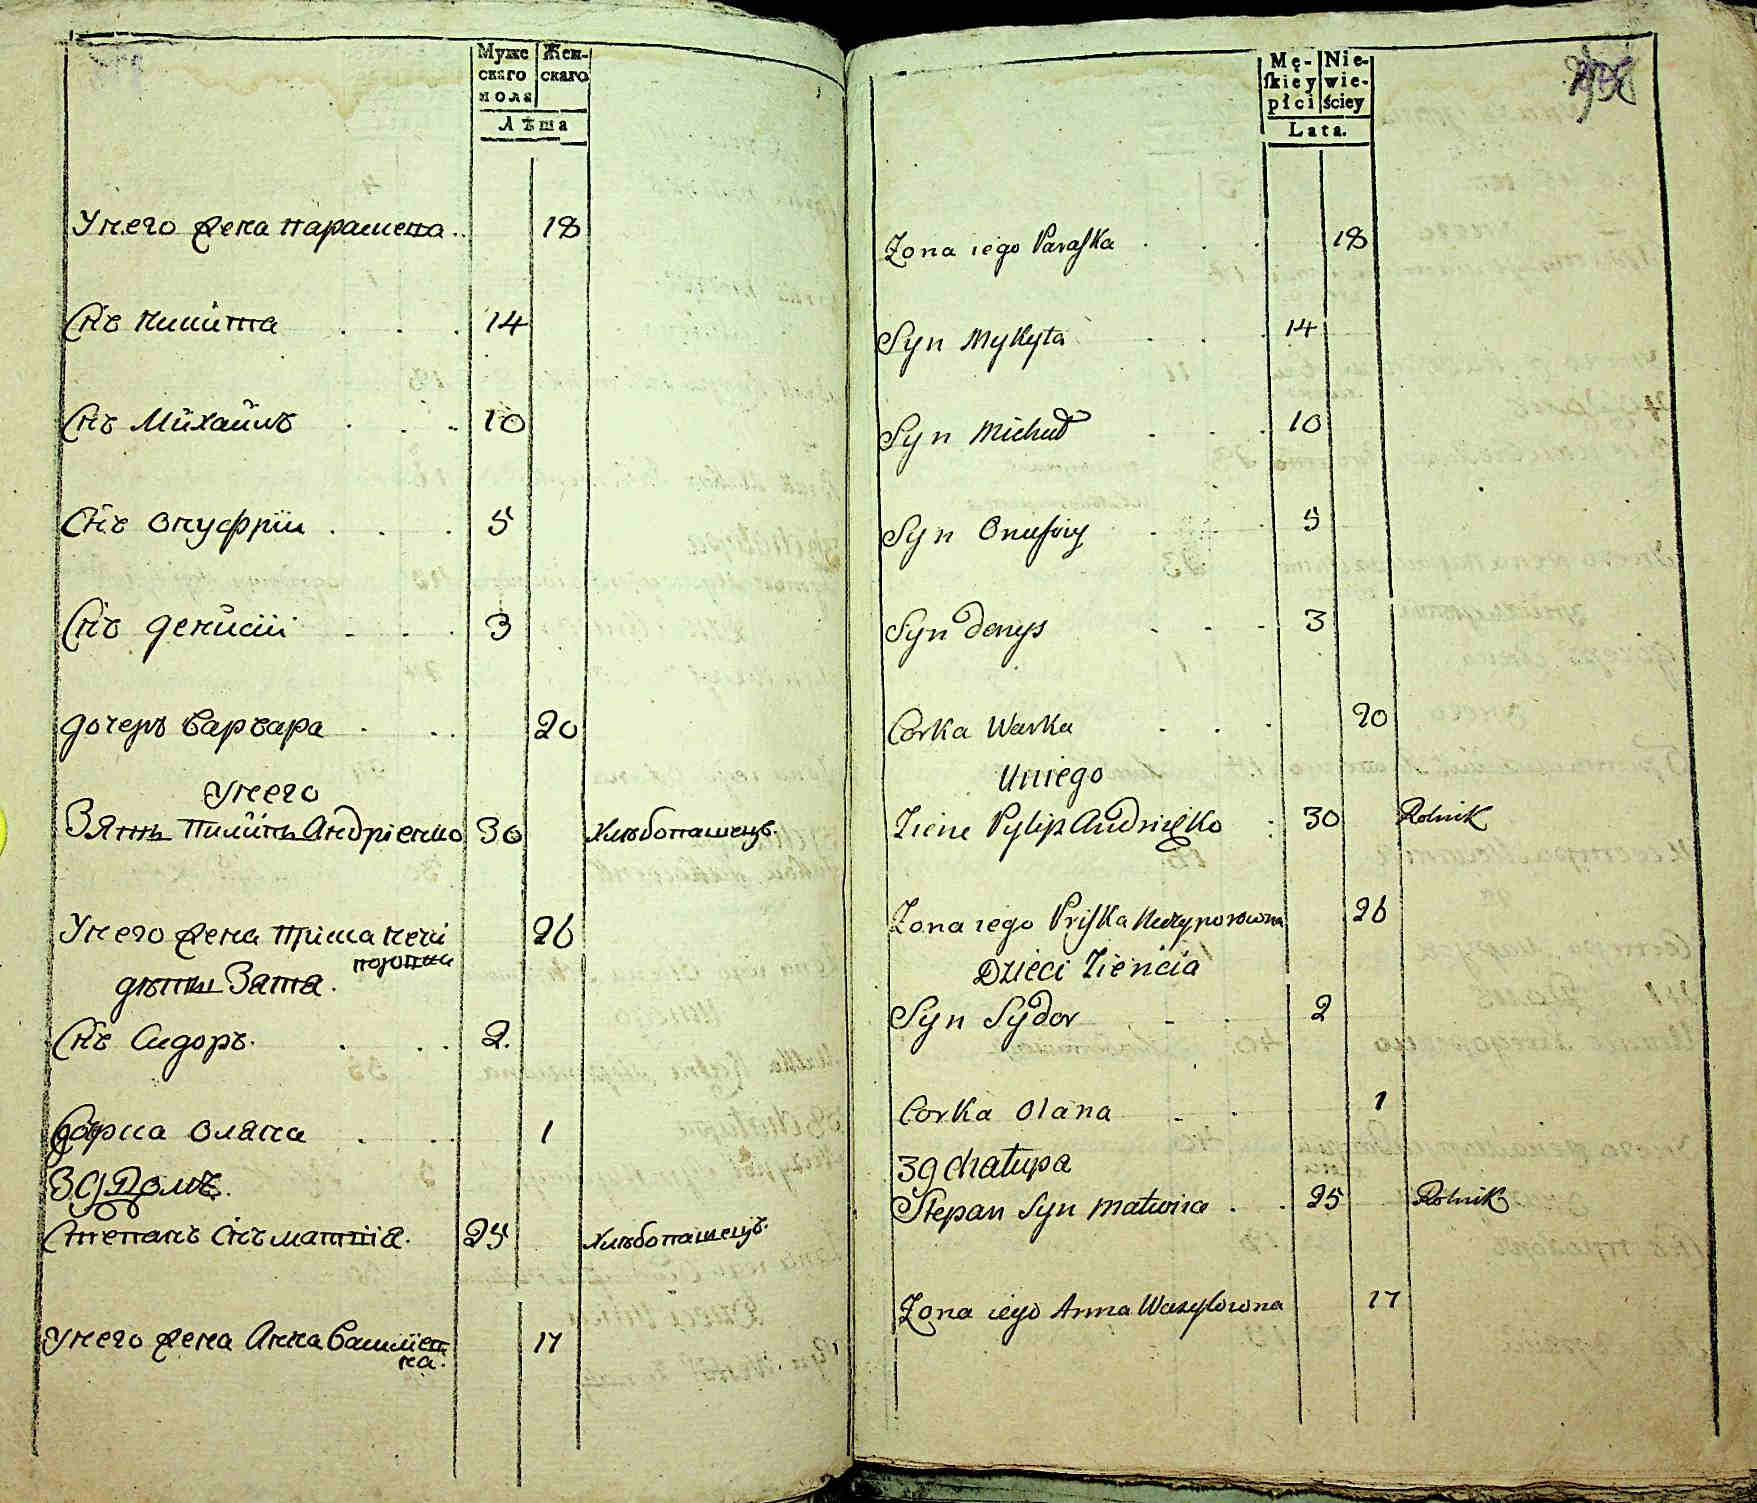 Муже Жен-
скаго скаго
пола
Лѣта
Унего жена парашека .. 18
Снъ никита . . . 14
Снъ Михаилъ . . . 10
Снъ онуфрїи . . . 5
Снъ денисїи . . . 3
дочерь варвара . . . 20
унего
Зять Пилипъ Андрїенко 30 Хлѣбопашецъ.
Унего жена приска
дѣти Зятя. 26
Снъ Сидоръ. . . . 2.
дочка оляна . . . 1
39 Домъ.
Степанъ Снъ матвіея. 25 Хлѣбопашецъ.
унего жена Анна 17
Mę- Nie-
skiey wie-
płci ściey
Lata.
Zona iego Paraska . . . 18
Syn Mykyta . . . 14
Syn Michał . . . 10
Syn Onufriy . . . 5
Syn Denys . . . 3
Corka Warka . . . 20
Uniego
Ziene Pylip Andrieÿko : 30 Rolnik
Zona iego Priska Neczyporowna 26
Dzieci Zięncia
Syn Sydor . . 2
Corka Olana . . 1
39 Chałupa
Stepan Syn Matwiia . . 25 Rolnik
Zona iego Anna Wasylowna 17